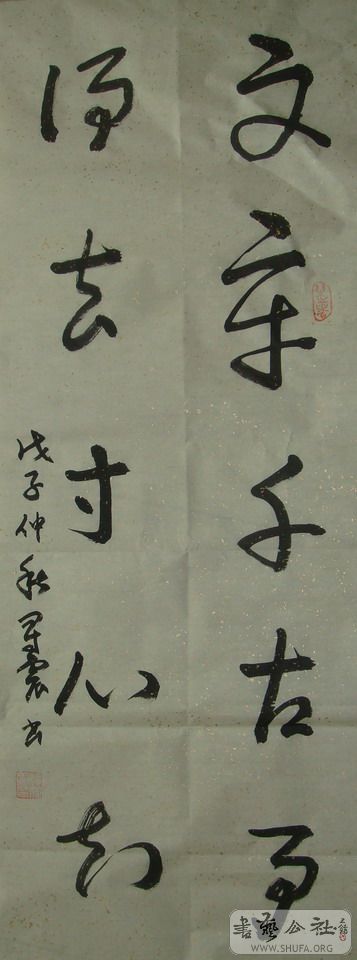 文章千古事
得失寸心知
戊子仲秋震书
書藝公社
WWW.SHUFA.ORG